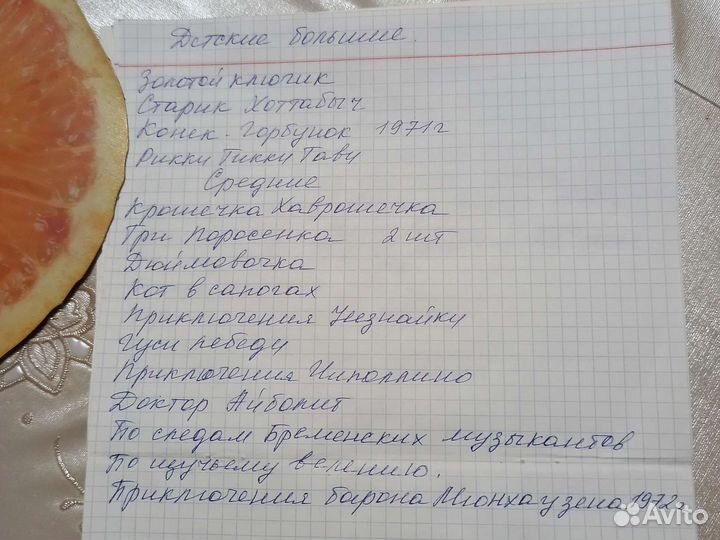 Детские большие.
Золотой ключик
Старик Хоттабыч
Конек-Горбунок 1971г
Рикки Тикки Тави
Средние
Крошечка Хаврошечка
Три поросенка 2 шт
Дюймовочка
Кот в сапогах
Приключения Незнайки
Гуси лебеди
Приключения Чиполлино
Доктор Айболит
По следам Бременских музыкантов
По щучьему велению.
Приключения барона Мюнхаузена 1972г
Avito